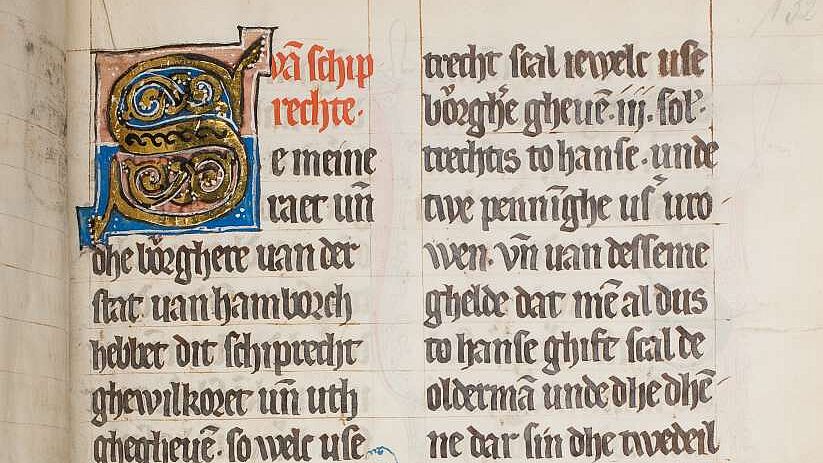 vā schip
rechte.
S
e meine
raet uñ
dhe bŏrghere uan der
stat uan hamborch
hebbet dit schiprecht
ghewilkoret uñ uth
ghegheuē. so welc use
trecht scal iewelc use
bŏrghe͛ gheuē. iij. sol᷒.
trechtis to hanse. unde
twe penninghe us᷒ uro
wen. vñ uan desseme
ghelde dat mē al dus
to hanse ghift scal de
oldermā unde dhe dhē
ne dar sin dhe twedeil